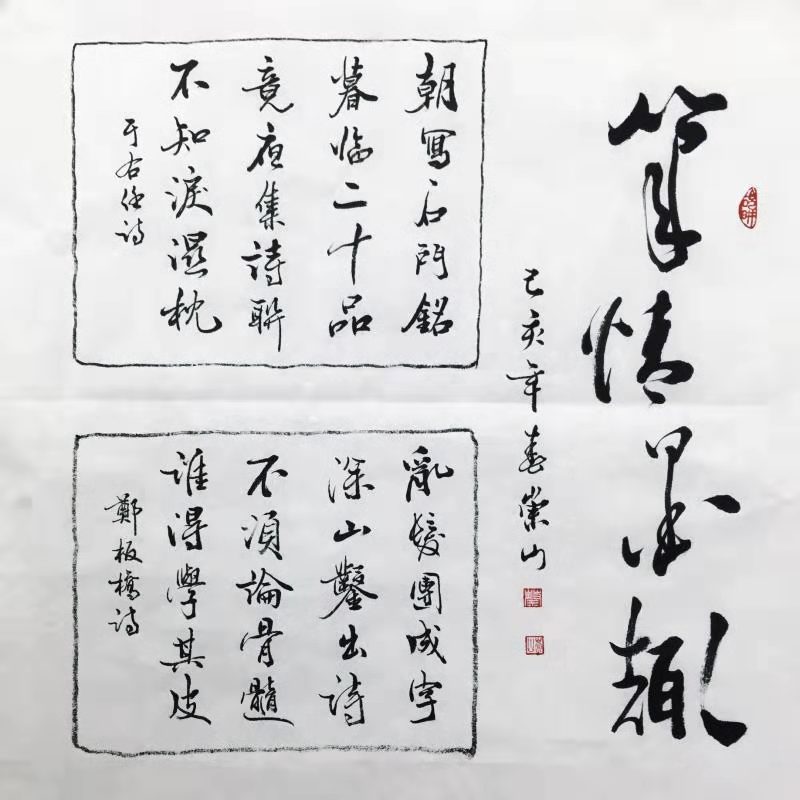 筆情墨趣
己亥年春崇山
朝寫石門銘
暮臨二十品
竟夜集詩聯
不知淚濕枕
于右任詩
亂髮團成字
深山鑿出詩
不須論骨髓
誰得學其皮
鄭板橋詩